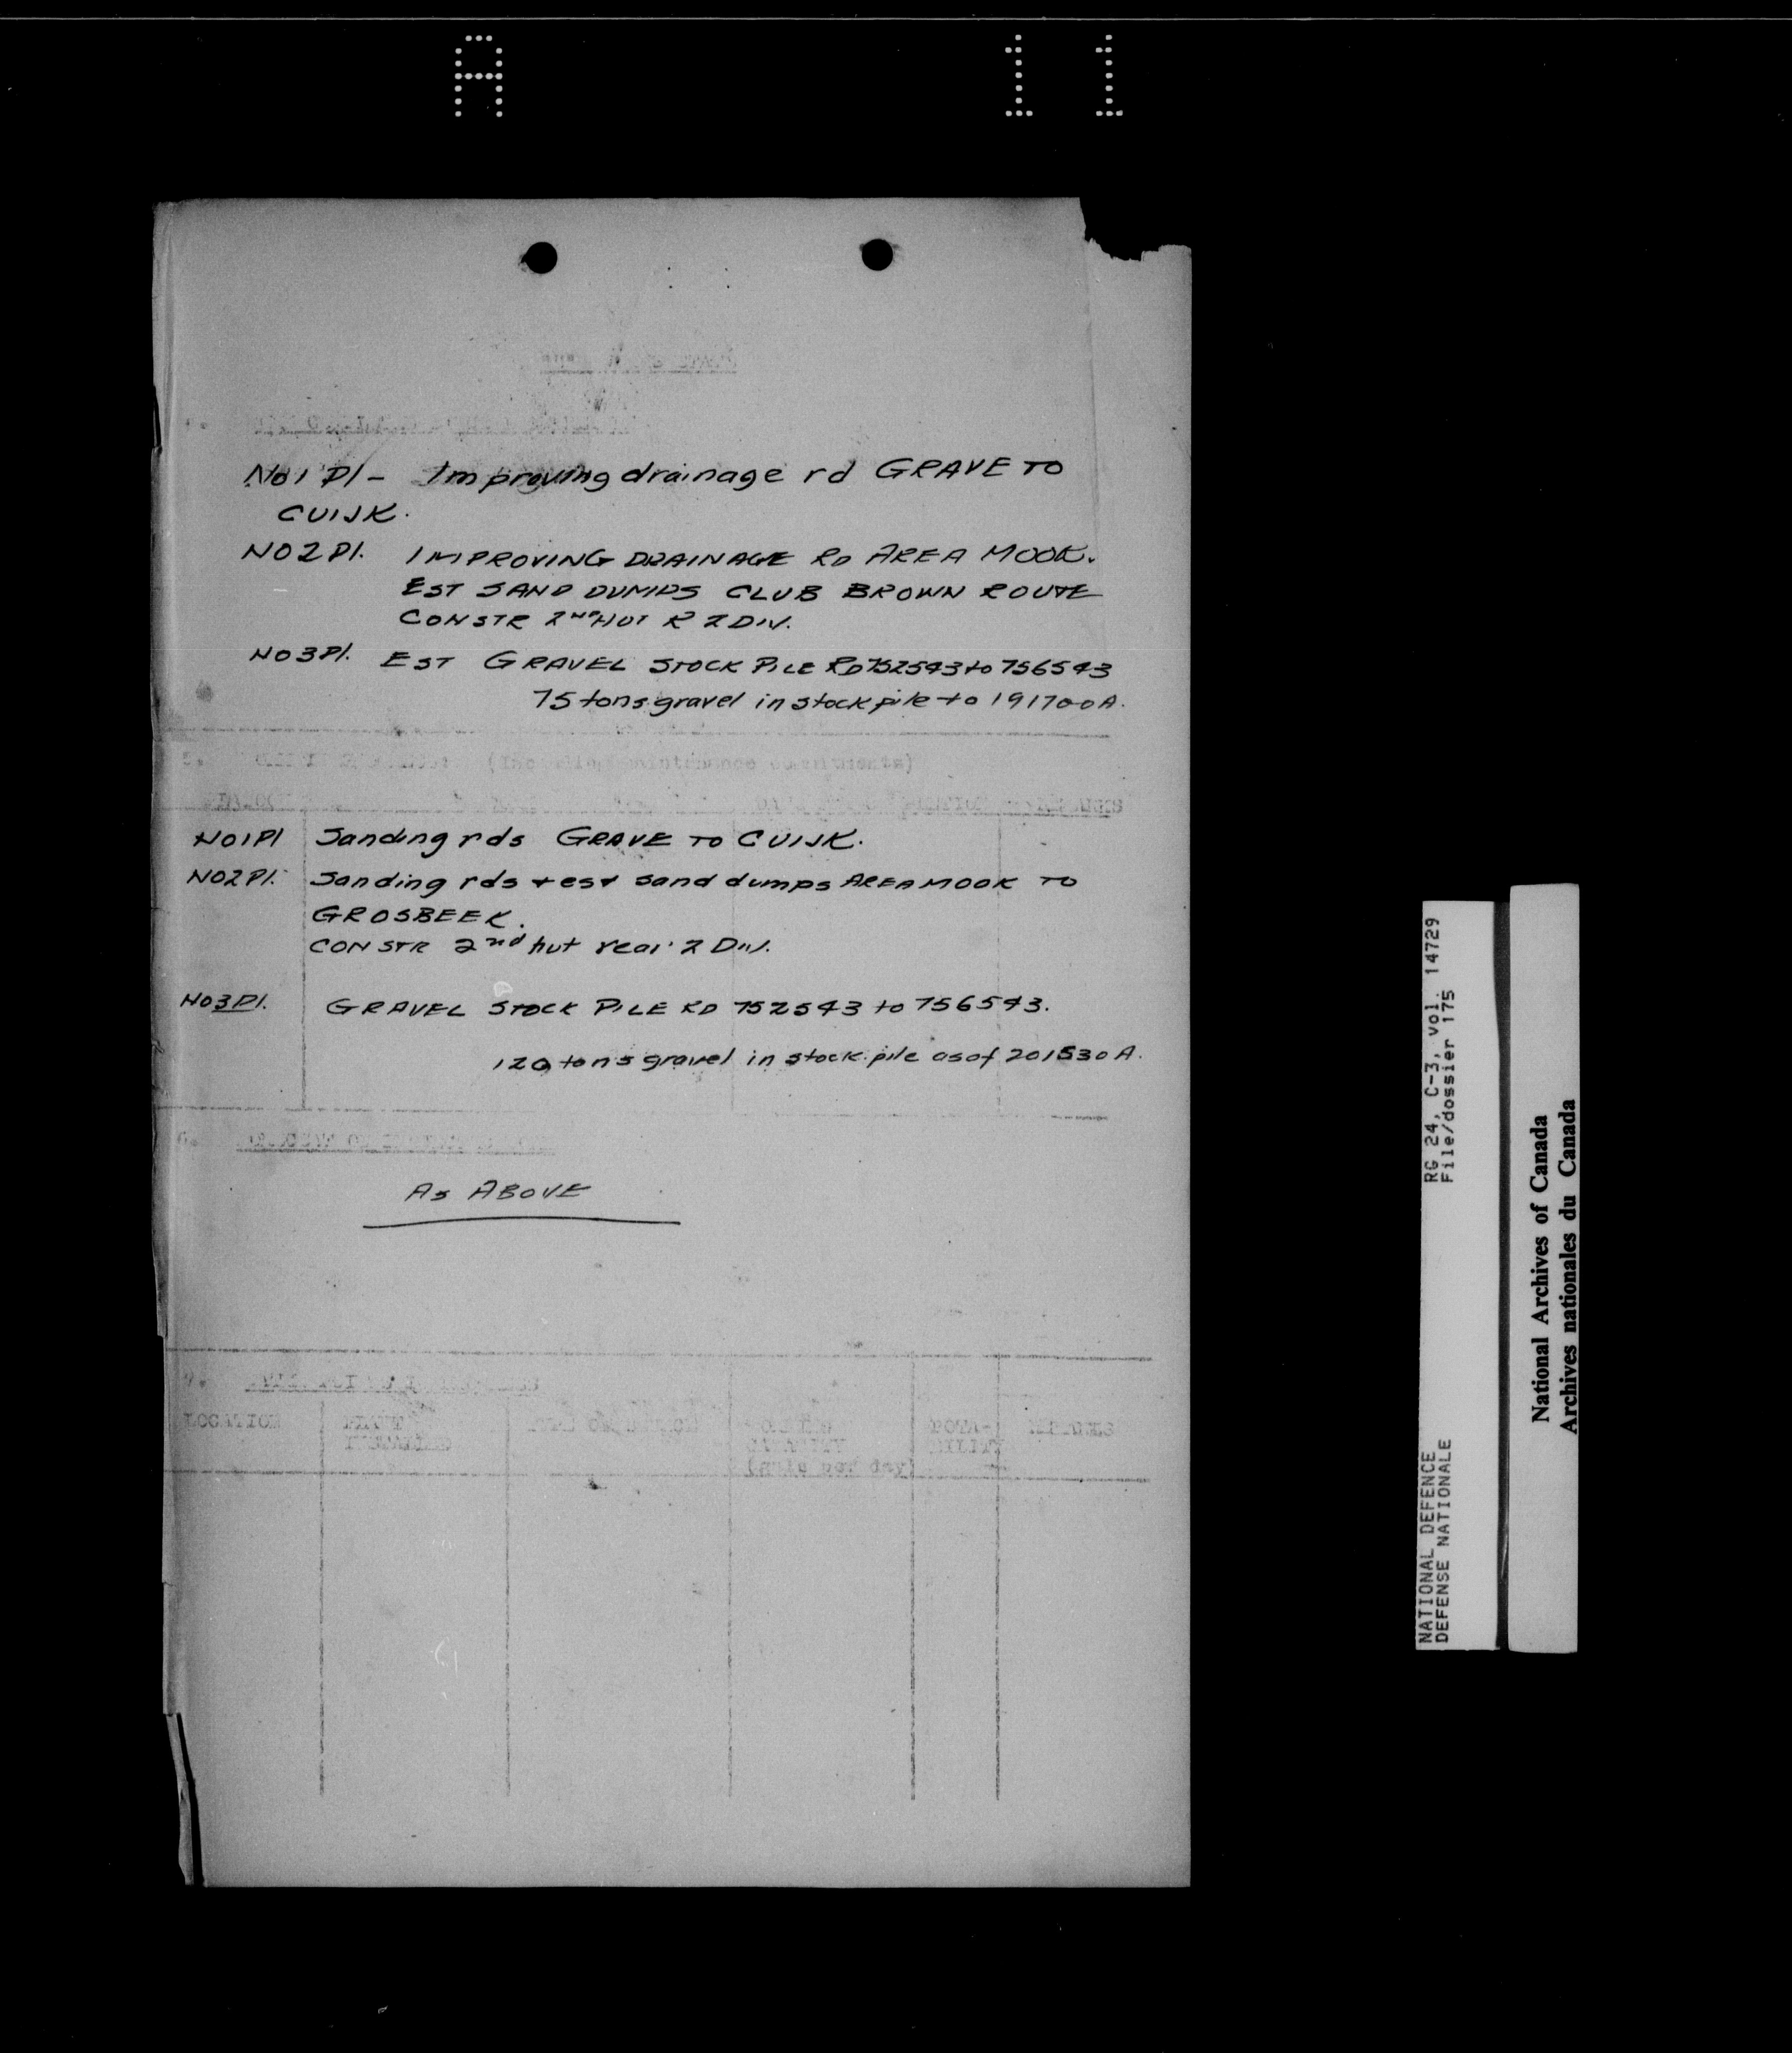 A 11
No 1 Pl - Improving drainage rd GRAVE TO
CUIJK.
NO 2 Pl. IMPROVING DRAINAGE RD AREA MOOK.
EST SAND DUMPS CLUB BROWN ROUTE
CONSTR 2ND HUT R 2 DIV.
NO 3 Pl. EST GRAVEL STOCK PILE RD 752543 to 756543
75 tons gravel in stock pile to 191700A.
5. (Including maintenance commitments)
NO 1 Pl Sanding rds GRAVE TO CUIJK.
NO 2 Pl. Sanding rds + est sand dumps AREA MOOK TO
GROSBEEK.
CONSTR 2nd hut rear 2 Div.
NO 3 Pl. GRAVEL STOCK PILE RD 752543 to 756543.
120 tons gravel in stock pile as of 201530A.
6.
AS ABOVE
LOCATION POTA- REMARKS
BILITY
(Gals per day)
NATIONAL DEFENCE RG 24, C-3, vol. 14729
DEFENSE NATIONALE File/dossier 175
National Archives of Canada
Archives nationales du Canada